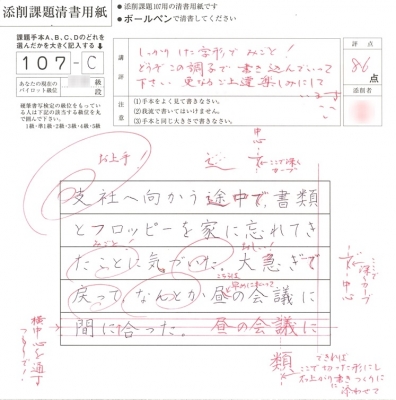 添削課題清書用紙
● 添削課題107用の清書用紙です
● ボールペンで清書してください
課題手本A、B、C、Dのどれを
選んだかを大きく記入する
107-C
あなたの現在の
パイロット級位
級
段
硬筆書写検定の級位をもっている
人は下記の該当する級位を丸
で囲んで下さい。
1級・準1級・2級・3級・4級・5級
講評
しっかりした字形でみごと!
どうぞこの調子で書き込んでいって
下さい。更なるご上達楽しみにして
います
注意
(1)手本をよく見て書きなさい。
(2)我流で書いてはいけません。
(3)手本と同じ大きさで書きなさい。
評点
86点
添削者
お上手!
中心
ここで深く
カーブ
支社へ向かう途中で、書類
とフロッピーを家に忘れてき
みごと!
おしい!
たことに気がついた。大急ぎで
戻って、なんとか昼の会議に
間に合った。
昼の会議に
横中心を通す
つもりで!
深くカーブ
中心
類
できれば
ここで切った形にし
右上がり書きつくりに
添わせて